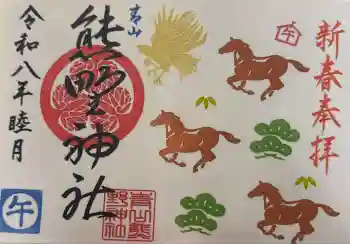 新春奉拝
午
青山
熊野神社
青山熊野神社
令和八年睦月
午